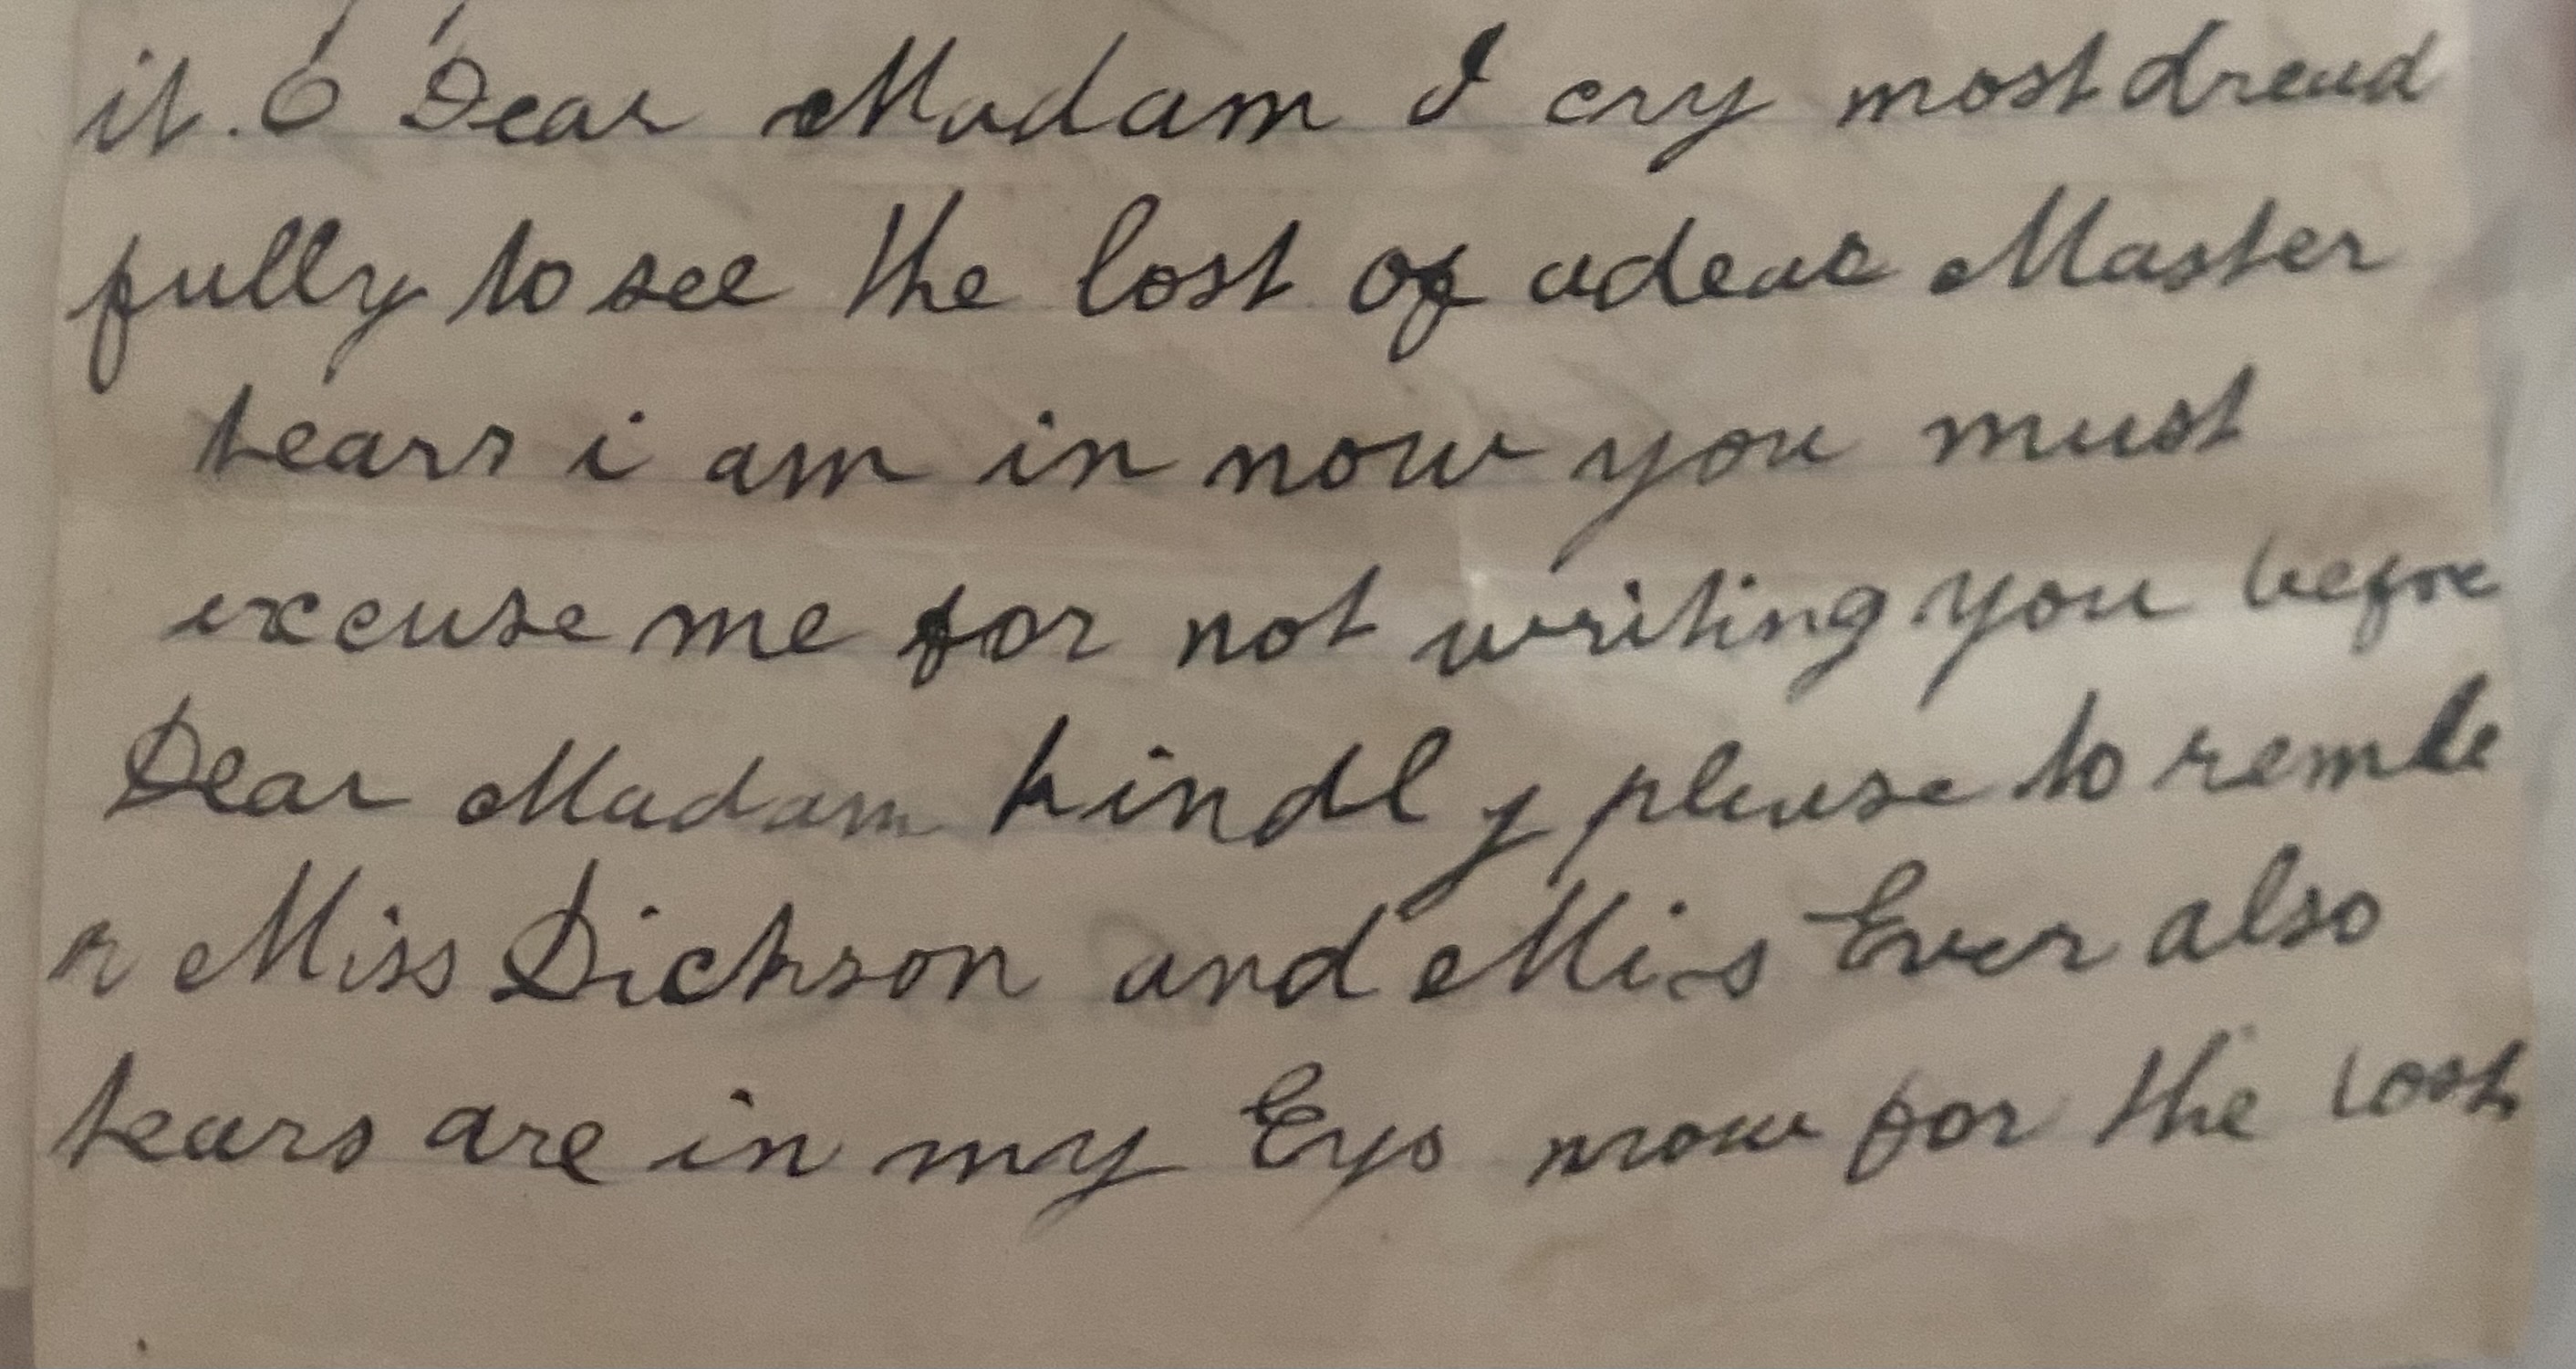 it. O Dear Madam I cry most dread
fully to see the lost of a dear Master
tears i am in now you must
excuse me for not writing you before
Dear Madam kindly please to rembe
r Miss Dickson and Miss Ever also
tears are in my Eys now for the lost